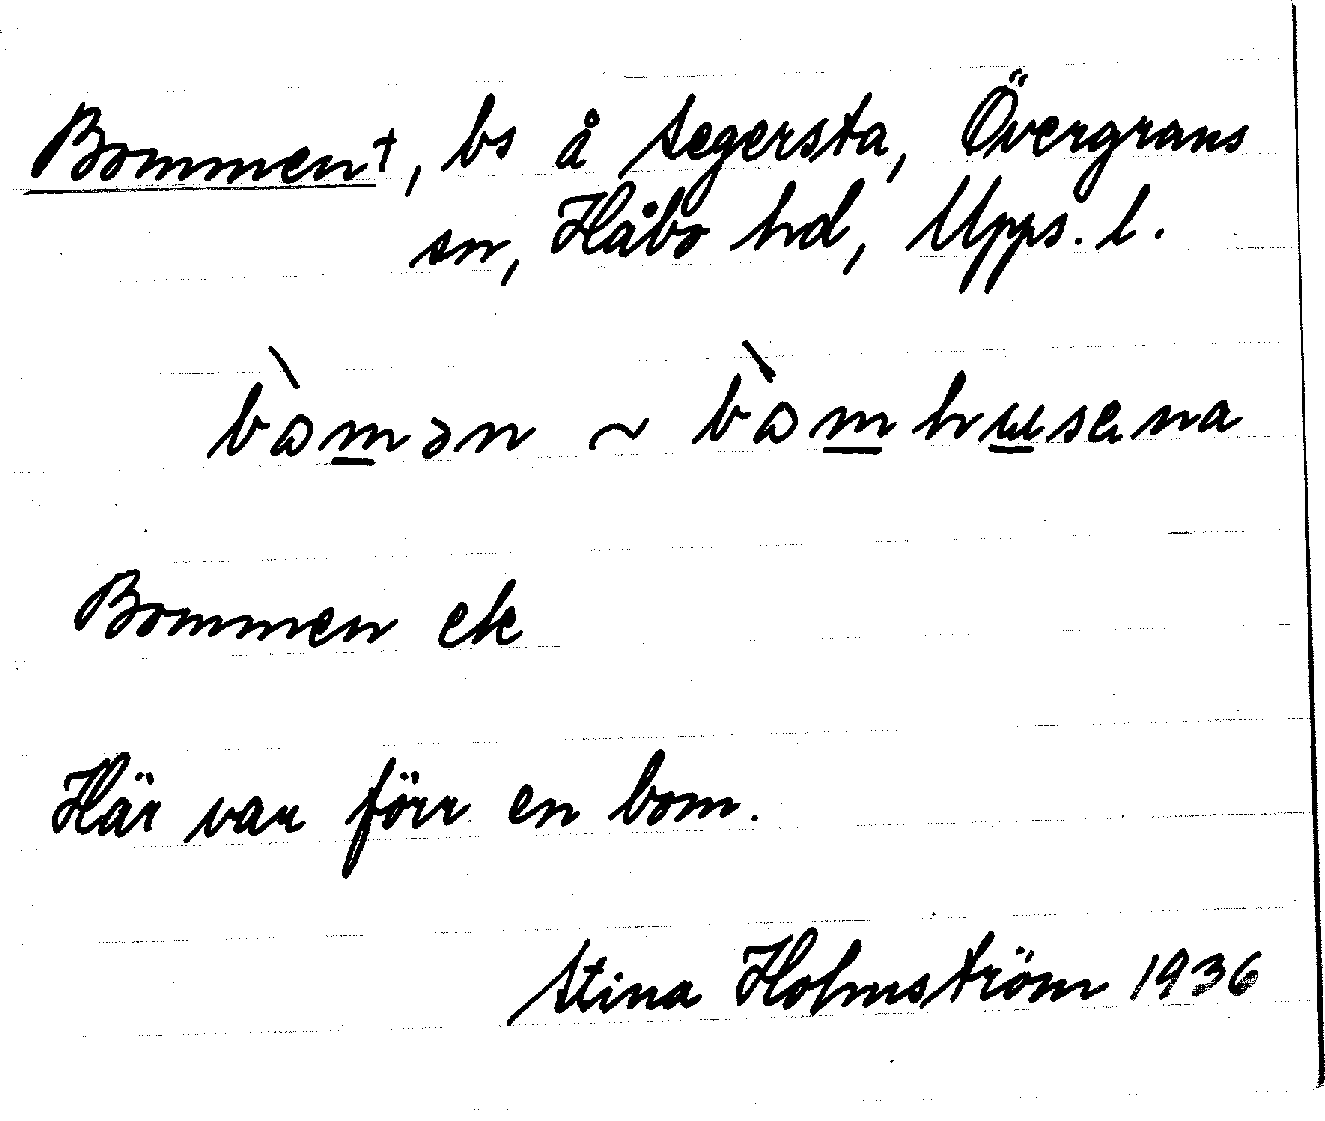 Bommen†, bs å Segersta, Övergrans
sn, Håbo hd, Upps. l.
bòmən ~ bòmhusena
Bommen ek
Här var förr en bom.
Stina Holmström 1936